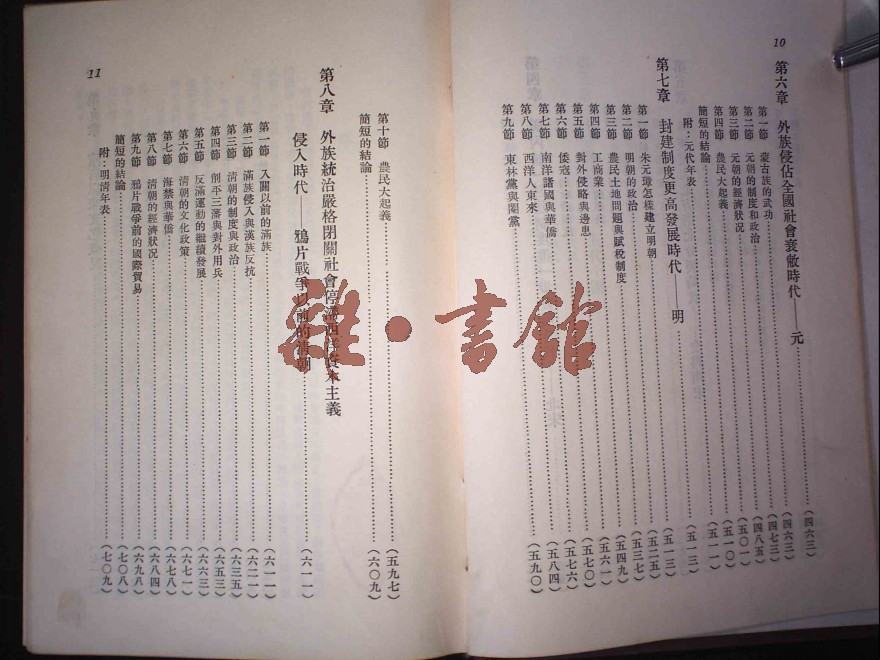 10
第六章 外族侵佔全國社會衰敝時代——元……（四六三）
第一節 蒙古族的武功……（四六三）
第二節 元朝的制度和政治……（四七三）
第三節 元朝的經濟狀况……（四八五）
第四節 農民大起義……（五〇一）
簡短的結論……（五一〇）
附：元代年表……（五一一）
第七章 封建制度更高發展時代——明……（五一三）
第一節 朱元璋怎樣建立明朝……（五一三）
第二節 明朝的政治……（五二五）
第三節 農民土地問題與賦稅制度……（五三七）
第四節 工商業……（五四九）
第五節 對外侵略與邊患……（五六一）
第六節 倭寇……（五七〇）
第七節 南洋諸國與華僑……（五七六）
第八節 西洋人東來……（五八四）
第九節 東林黨與閹黨……（五九〇）
11
第十節 農民大起義……（五九七）
簡短的結論……（六〇九）
第八章 外族統治嚴格閉關社會停滯西洋資本主義
侵入時代——鴉片戰爭以前的清朝……（六一一）
第一節 入關以前的滿族……（六一一）
第二節 滿族侵入與漢族反抗……（六二一）
第三節 清朝的制度與政治……（六三五）
第四節 削平三藩與對外用兵……（六五三）
第五節 反滿運動的繼續發展……（六六三）
第六節 清朝的文化政策……（六七一）
第七節 海禁與華僑……（六七八）
第八節 清朝的經濟狀况……（六八四）
第九節 鴉片戰爭前的國際貿易……（六九八）
簡短的結論……（七〇八）
附：明清年表……（七〇九）
雜·書館